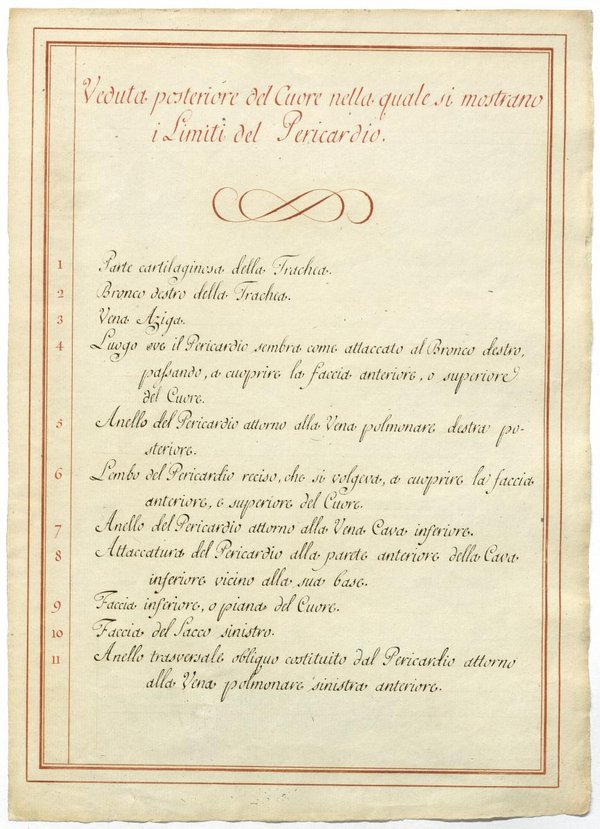 Veduta posteriore del Cuore nella quale si mostrano
i Limiti del Pericardio.
1 Parte cartilaginosa della Trachea.
2 Bronco destro della Trachea.
3 Vena Aziga.
4 Luogo ove il Pericardio sembra come attaccato al Bronco destro,
passando, a cuoprire la faccia anteriore, o superiore
del Cuore.
5 Anello del Pericardio attorno alla Vena polmonare destra po-
steriore.
6 Lembo del Pericardio reciso, che si volgeva, a cuoprire la faccia
anteriore, e superiore del Cuore.
7 Anello del Pericardio attorno alla Vena Cava inferiore.
8 Attaccatura del Pericardio alla parete anteriore della Cava
inferiore vicino alla sua base.
9 Faccia inferiore, o piana del Cuore.
10 Faccia del Sacco sinistro.
11 Anello trasversale obliquo costituito dal Pericardio attorno
alla Vena polmonare sinistra anteriore.